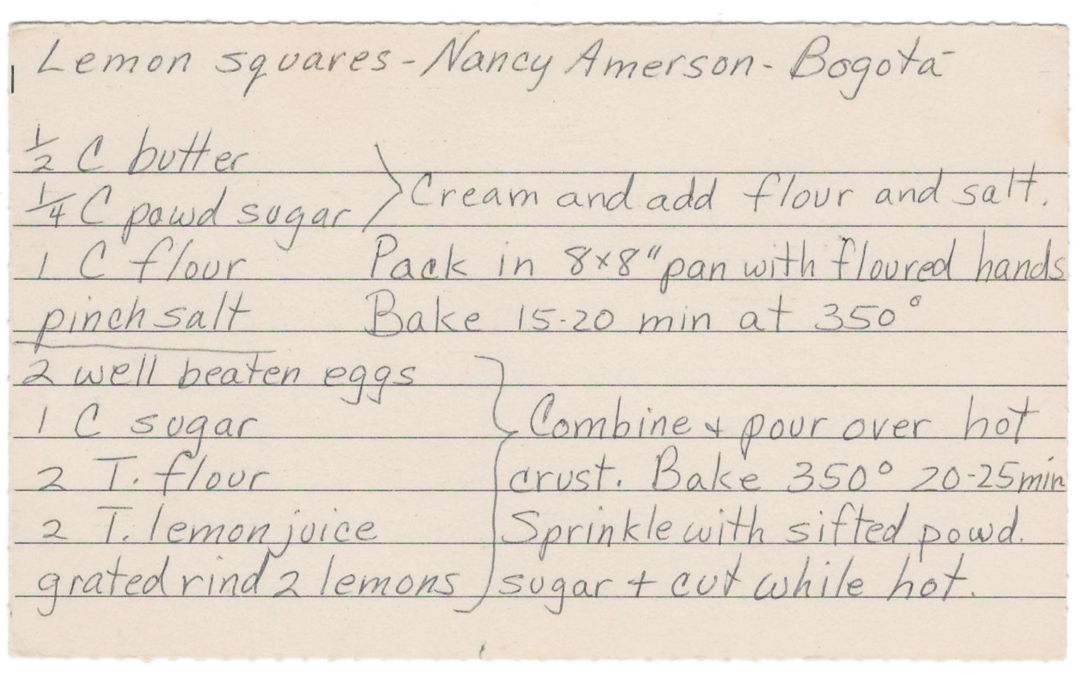 Lemon squares - Nancy Amerson - Bogotá
1/2 C butter
1/4 C powd sugar > Cream and add flour and salt.
1 C flour Pack in 8x8" pan with floured hands
pinch salt Bake 15-20 min at 350°
2 well beaten eggs
1 C sugar Combine + pour over hot
2 T. flour crust. Bake 350° 20-25 min
2 T. lemon juice Sprinkle with sifted powd.
grated rind 2 lemons sugar + cut while hot.